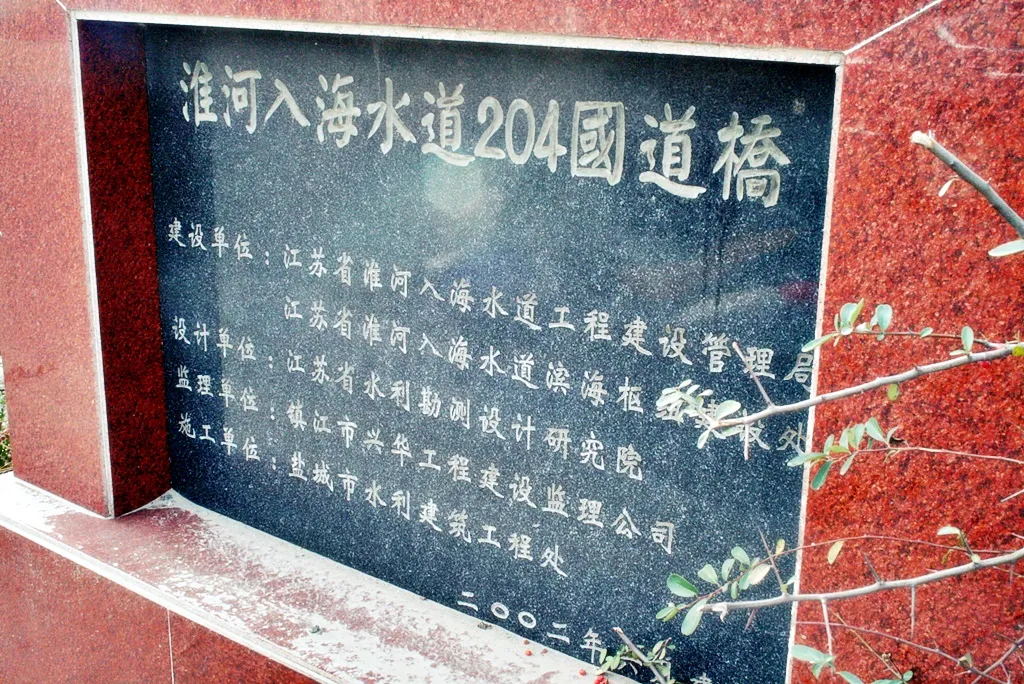 淮河入海水道204國道橋
建设单位：江苏省淮河入海水道工程建设管理局
江苏省淮河入海水道滨海枢 建 处
设计单位：江苏省水利勘测设计研究院
监理单位：镇江市兴华工程建设监理公司
施工单位：盐城市水利建筑工程处
二〇〇二年